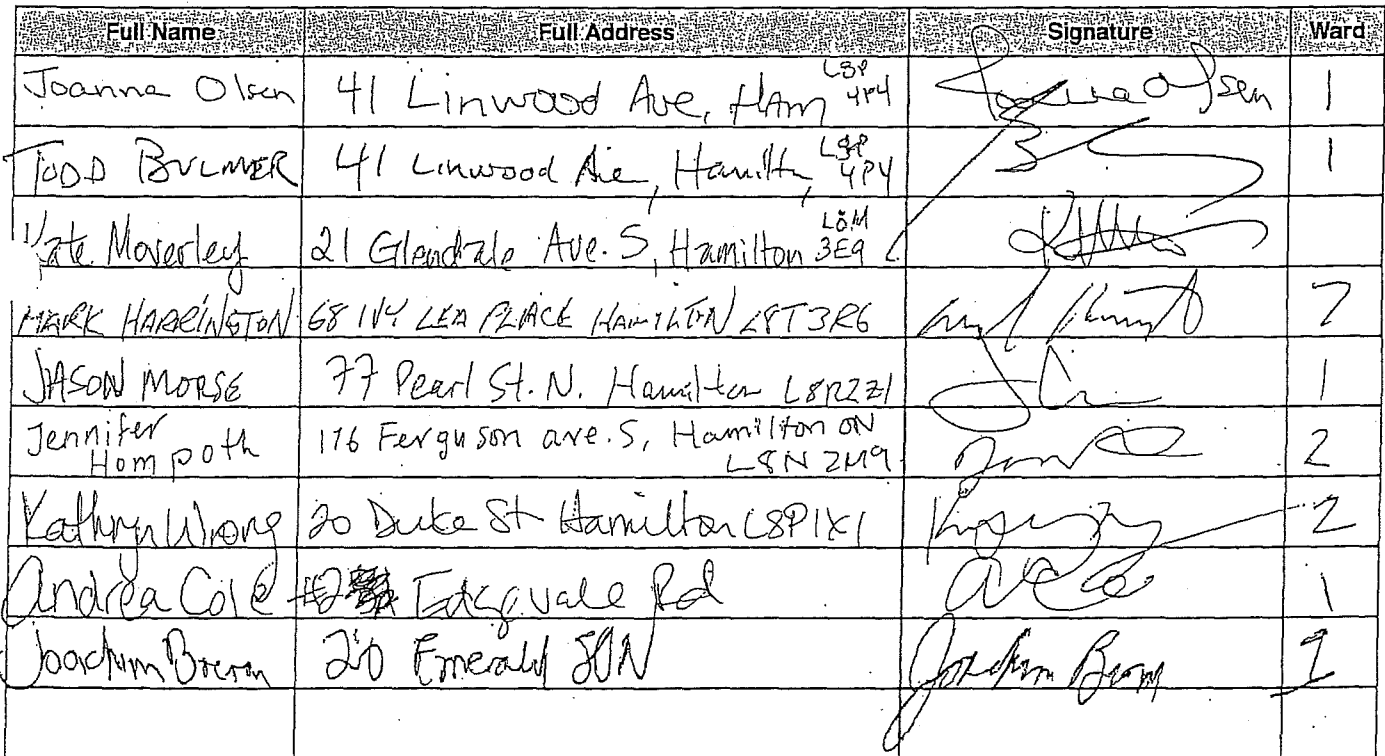 Full Name Full Address Signature Ward
Joanna Olsen 41 Linwood Ave, Ham L8P 4P4 Joanna Olsen 1
TODD BULMER 41 Linwood Ave, Hamilton L8P 4P4 1
Kate Moverley 21 Glendale Ave. S, Hamilton L8M 3E9
MARK HARRINGTON 68 IVY LEA PLACE HAMILTON L8T3R6 7
JASON MORSE 77 Pearl St. N. Hamilton L8R2Z1 1
Jennifer Hompoth 176 Ferguson ave. S, Hamilton ON L8N 2M9 2
Kathryn Wrong 20 Duke St Hamilton L8P1X1 2
Andrea Cole #2 Rd 1
Joachim 20 Emerald Joachim